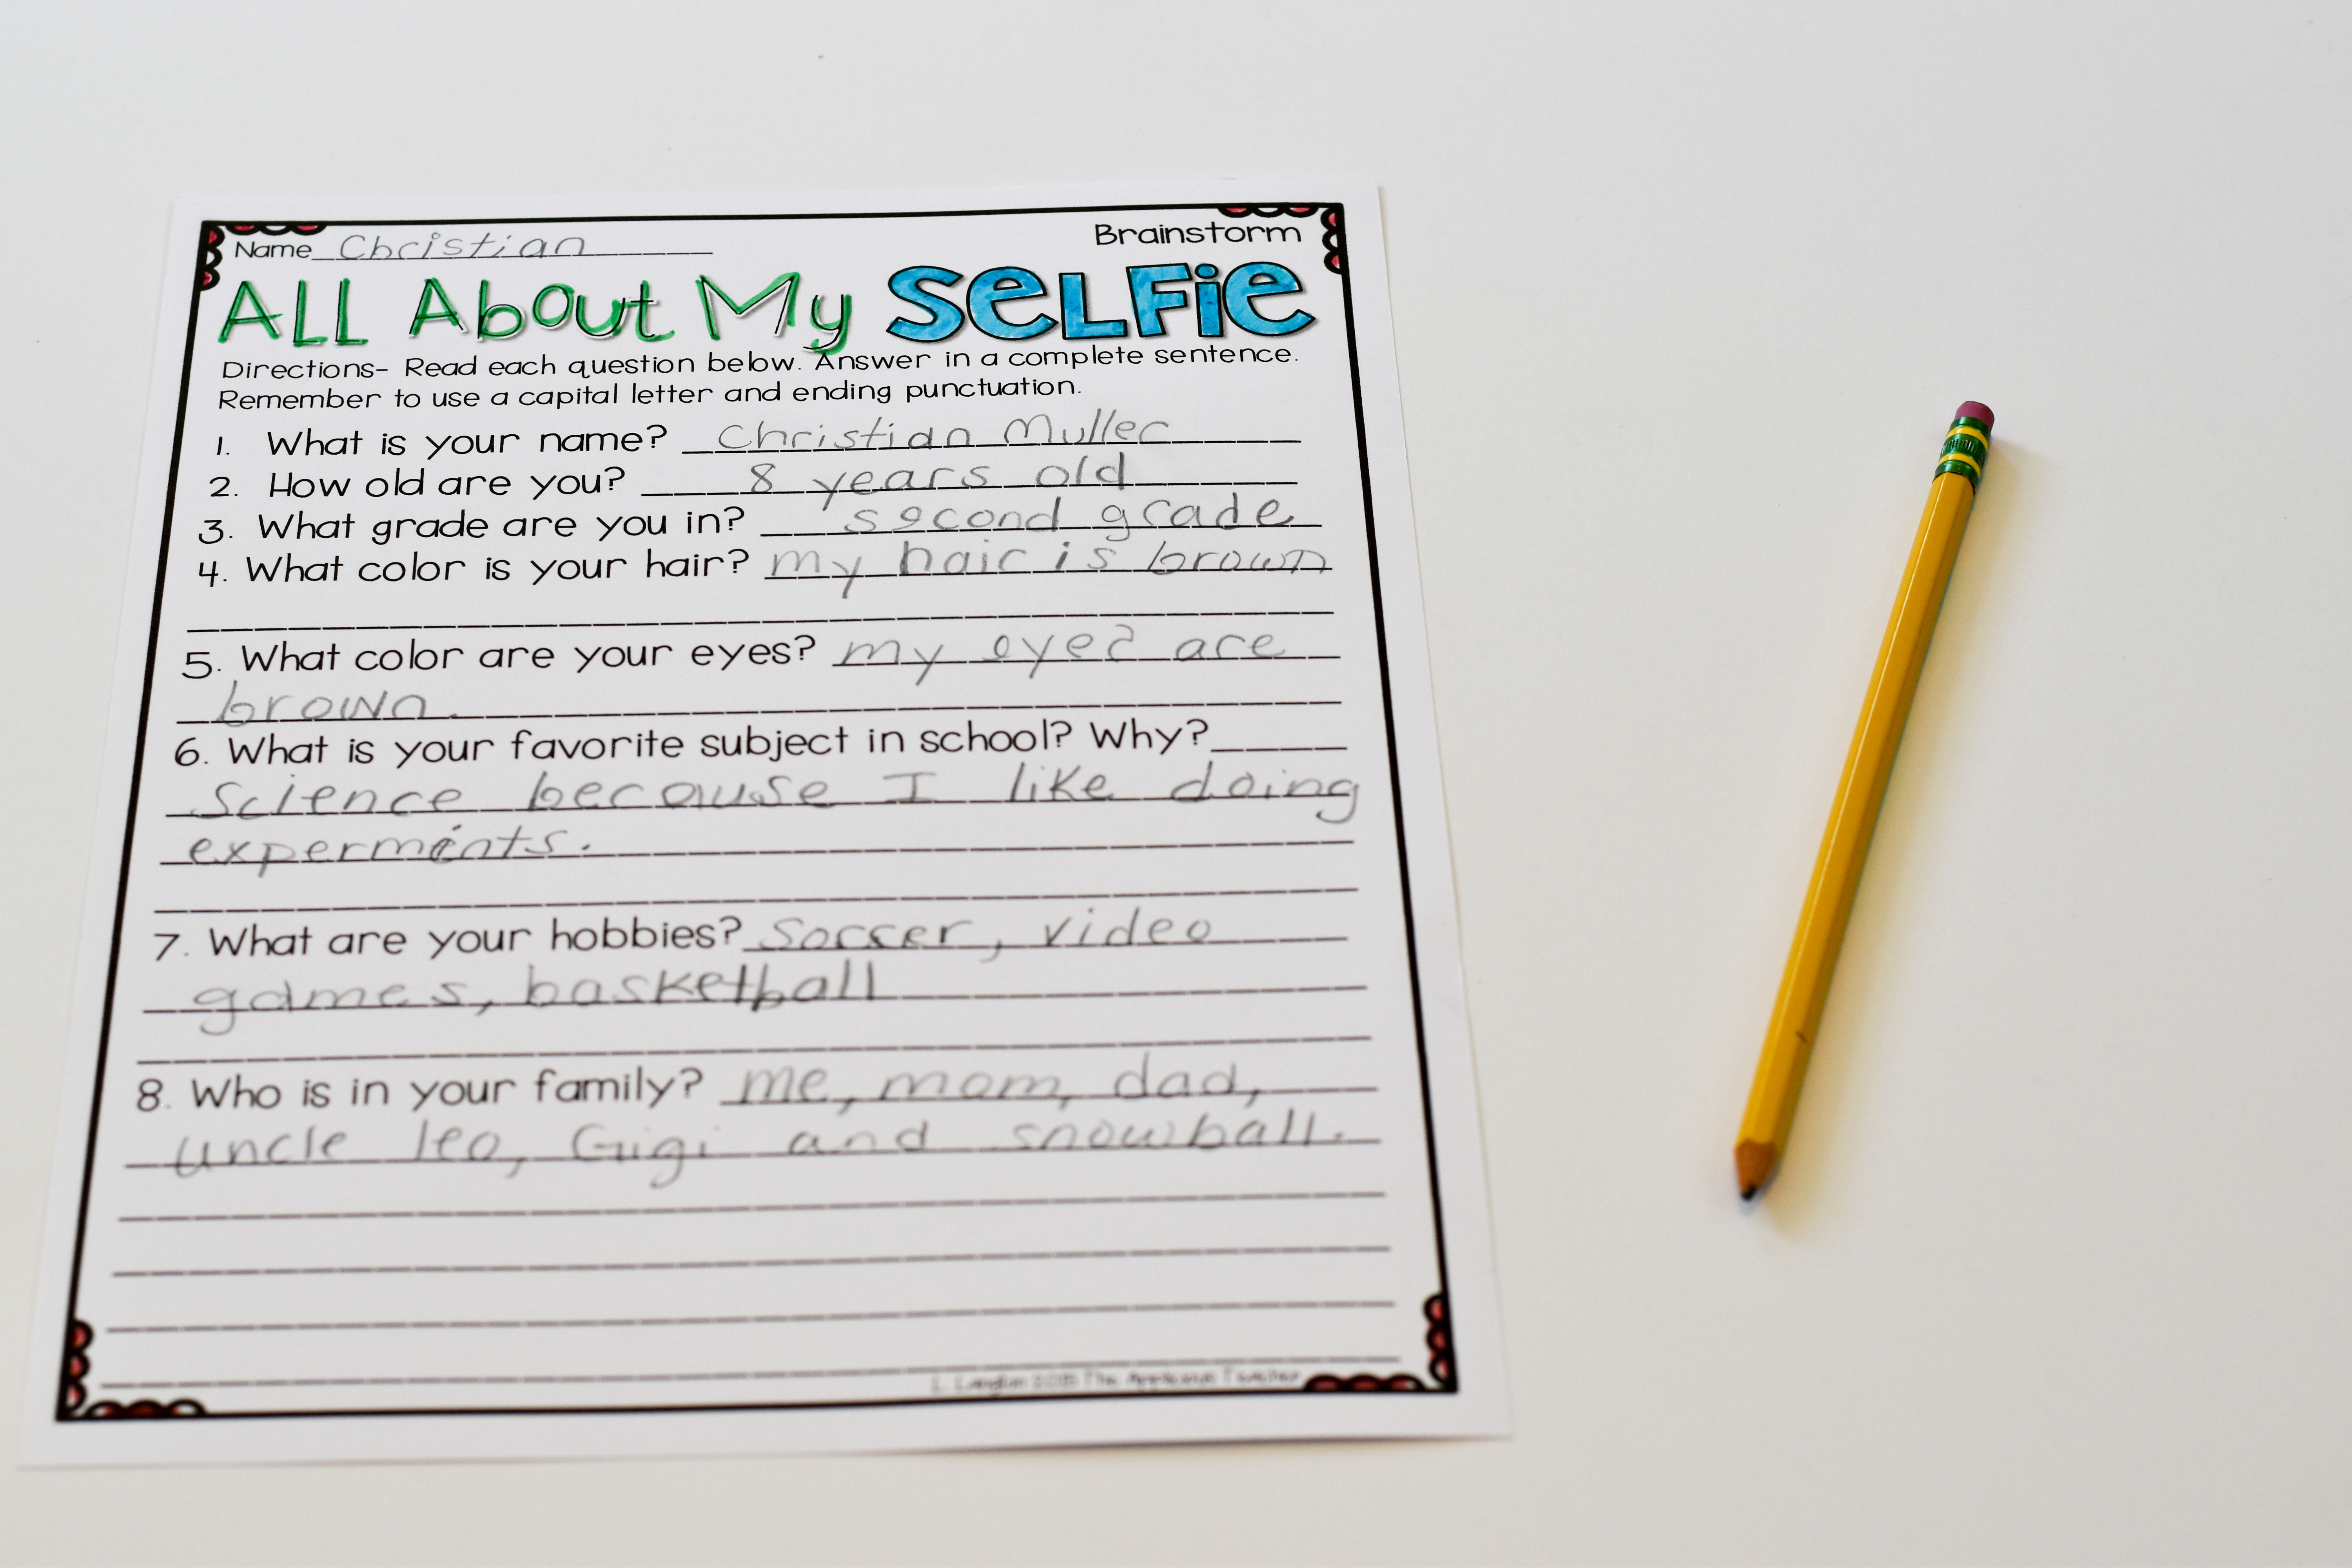 Name Christian
Brainstorm
ALL About My SeLFie
Directions- Read each question below. Answer in a complete sentence.
Remember to use a capital letter and ending punctuation.
1. What is your name? Christian Muller
2. How old are you? 8 years old
3. What grade are you in? second grade
4. What color is your hair? my hair is brown
5. What color are your eyes? my eyes are
brown.
6. What is your favorite subject in school? Why?
Science because I like doing
experments.
7. What are your hobbies? Soccer, video
games, basketball
8. Who is in your family? me, mom, dad,
uncle leo, Gigi and snowball.